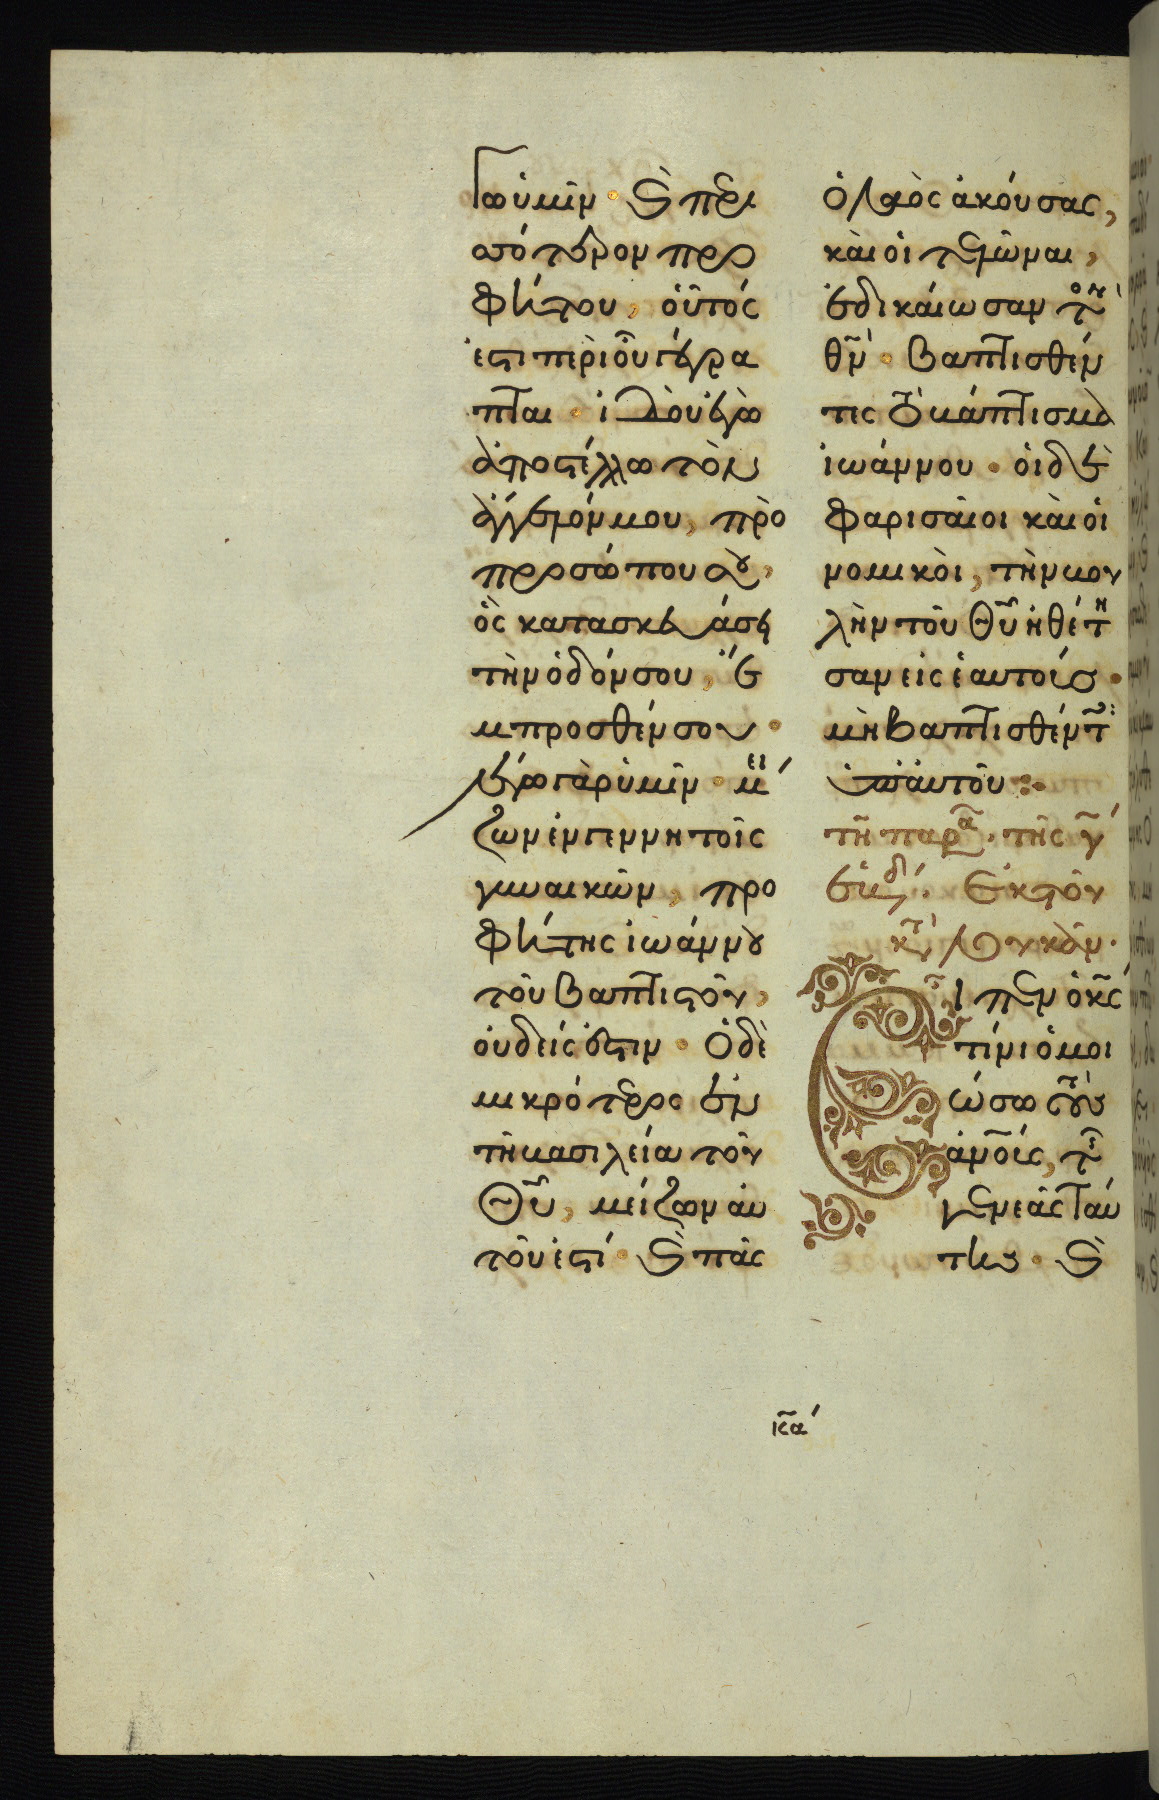 γω ὑμῖν · ϗ περι
σσότερον προ
φήτου, οὗτός
ἐστι περὶ οὗ γέγρα
πται · ἰδοὺ ἐγὼ
ἀποστέλλω τὸν
ἄγγελόν μου, πρὸ
προσώπου σου,
ὃς κατασκευάσει
τὴν ὁδόν σου, ἔ
μπροσθέν σου ·
λέγω γὰρ ὑμῖν · μεί
ζων ἐν γεννητοῖς
γυναικῶν, προ
φήτης ἰωάννου
τοῦ βαπτιστοῦ,
οὐδείς ἐστιν · Ὁ δὲ
μικρότερος ἐν
τῇ βασιλεία τοῦ
Θ̅υ̅, μείζων αὐ
τοῦ ἐστί · ϗ πᾶς
ὁ λαὸς ἀκούσας,
καὶ οἱ τελῶναι,
ἐδικαίωσαν τὸν
θ̅ν̅ · βαπτισθέν
τες τὸ βάπτισμα
ἰωάννου · οἱ δὲ
φαρισαῖοι καὶ οἱ
νομικοὶ, τὴν βου
λὴν τοῦ Θ̅υ̅ ἠθέτη
σαν εἰς ἑαυτούς ·
μὴ βαπτισθέντες
ὑπ' αὐτοῦ :·
τῇ παρα. τῆς γ
ἑβδ. Ἐκ τοῦ
κτ Λουκᾶν ·
Εἶπεν ὁ κ̅ς̅
τίνι ὁμοι
ώσω τοὺς
ἀν̅ο̅υς, τῆς
γενεᾶς ταύ
της · ϗ
κα